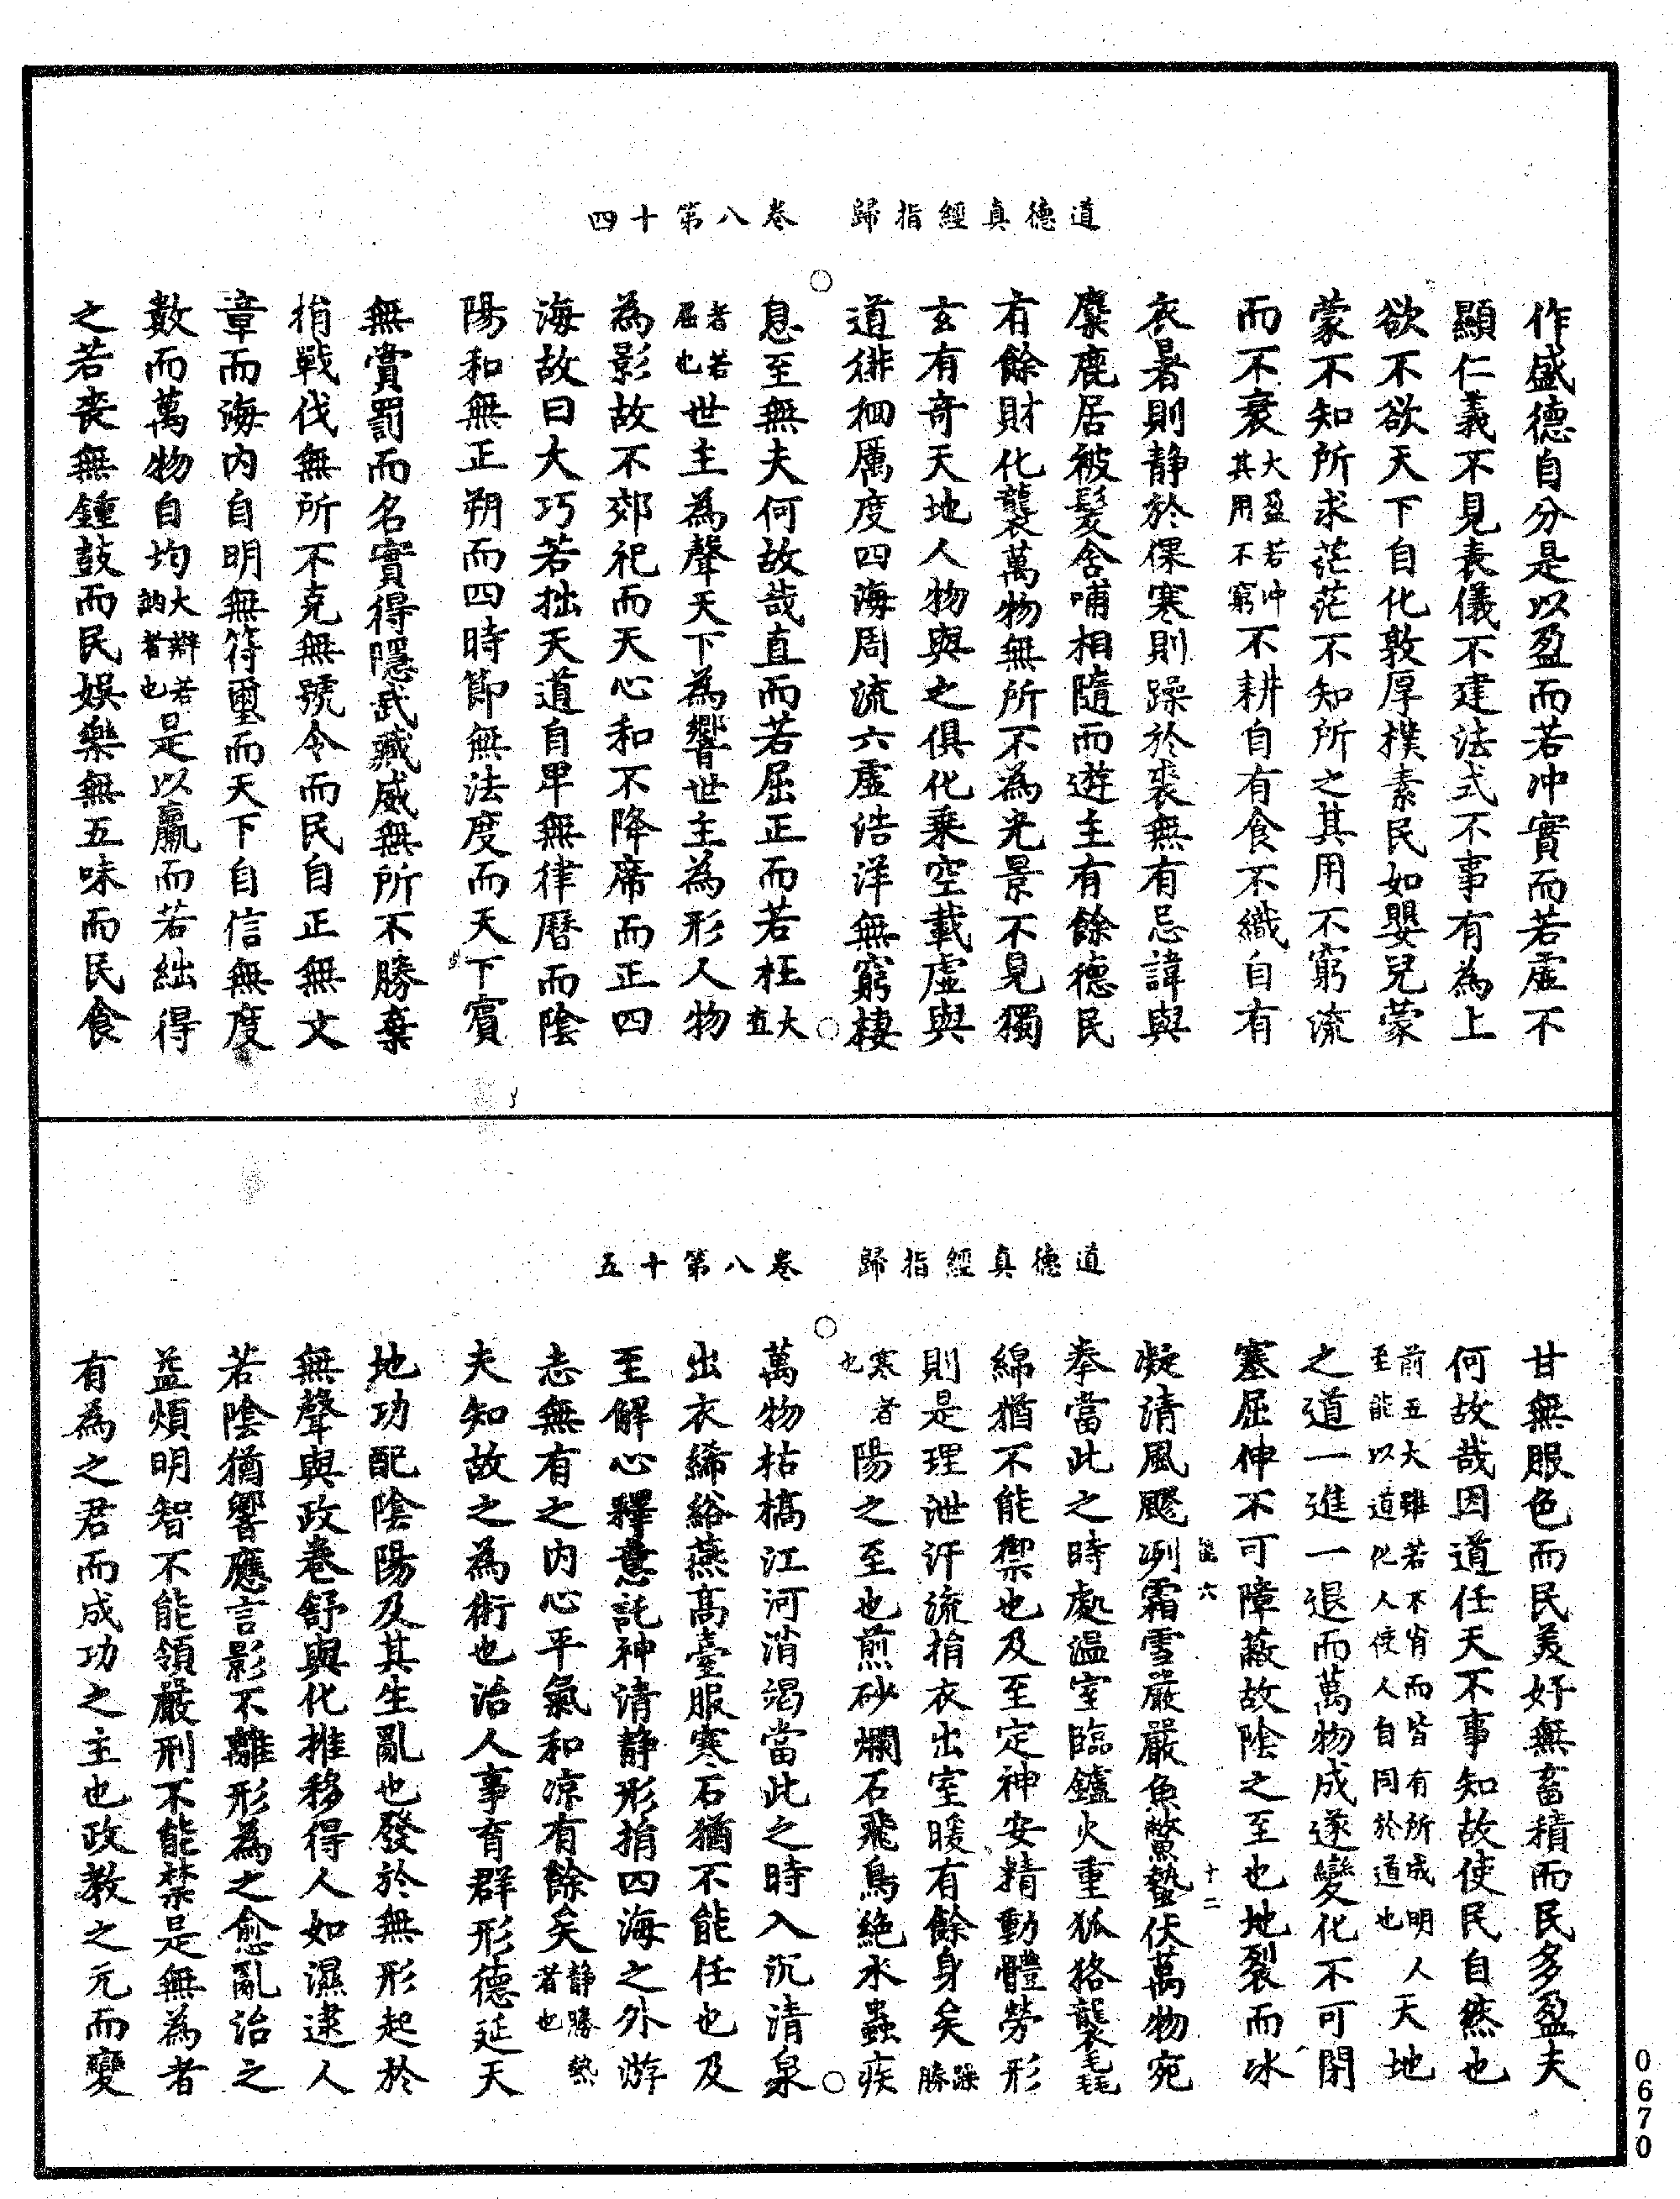 道德真經指歸　卷八第十四
作盛德自分是以盈而若冲實而若虛不
顯仁義不見表儀不建法式不事有為上
欲不欲天下自化敦厚樸素民如嬰兒蒙
蒙不知所求茫茫不知所之其用不窮流
而不衰大盈若冲其用不窮不耕自有食不織自有
衣暑則静於倮寒則躁於裘無有忌諱與
麋鹿居被髮含哺相隨而遊主有餘德民
有餘財化襲萬物無所不為光景不見獨
玄有奇天地人物與之俱化乘空載虛與
道徘徊厲度四海周流六虛浩洋無窮棲
息至無夫何故哉直而若屈正而若枉大直
者若屈也世主為聲天下為響世主為形人物
為影故不郊祀而天心和不降席而正四
海故曰大巧若拙天道自卑無律曆而陰
陽和無正朔而四時節無法度而天下賓
無賞罰而名實得隱武藏威無所不勝棄
捐戰伐無所不克無號令而民自正無文
章而海内自明無符璽而天下自信無度
數而萬物自均大辯若訥者也是以贏而若絀得
之若喪無鍾鼓而民娛樂無五味而民食
道德真經指歸　卷八第十五
甘無服色而民美好無畜積而民多盈夫
何故哉因道任天不事知故使民自然也
前五大雖若不肖而皆有所成明人至能以道化人使人自同於道也天地
之道一進一退而萬物成遂變化不可閉
塞屈伸不可障蔽故陰之至也地裂而冰
凝清風飂冽霜雪嚴嚴魚鱉蟄伏萬物宛
六　十二
拳當此之時處溫室臨鑪火重狐狢襲毛毳
綿猶不能禦也及至定神安精動體勞形
則是理泄汗流捐衣出室暖有餘身矣躁勝
寒者也陽之至也煎砂爛石飛鳥絕水蟲疾
萬物枯槁江河消渴當此之時入沉清泉
出衣絺綌燕高臺服寒石猶不能任也及
至解心釋意託神清静形捐四海之外游
志無有之内心平氣和凉有餘矣静勝熱者也
夫知故之為術也治人事育群形德延天
地功配陰陽及其生亂也發於無形起於
無聲與政卷舒與化推移得人如濕逮人
若陰猶響應言影不離形為之愈亂治之
益煩明智不能領嚴刑不能禁是無為者
有為之君而成功之主也政教之元而變
0670